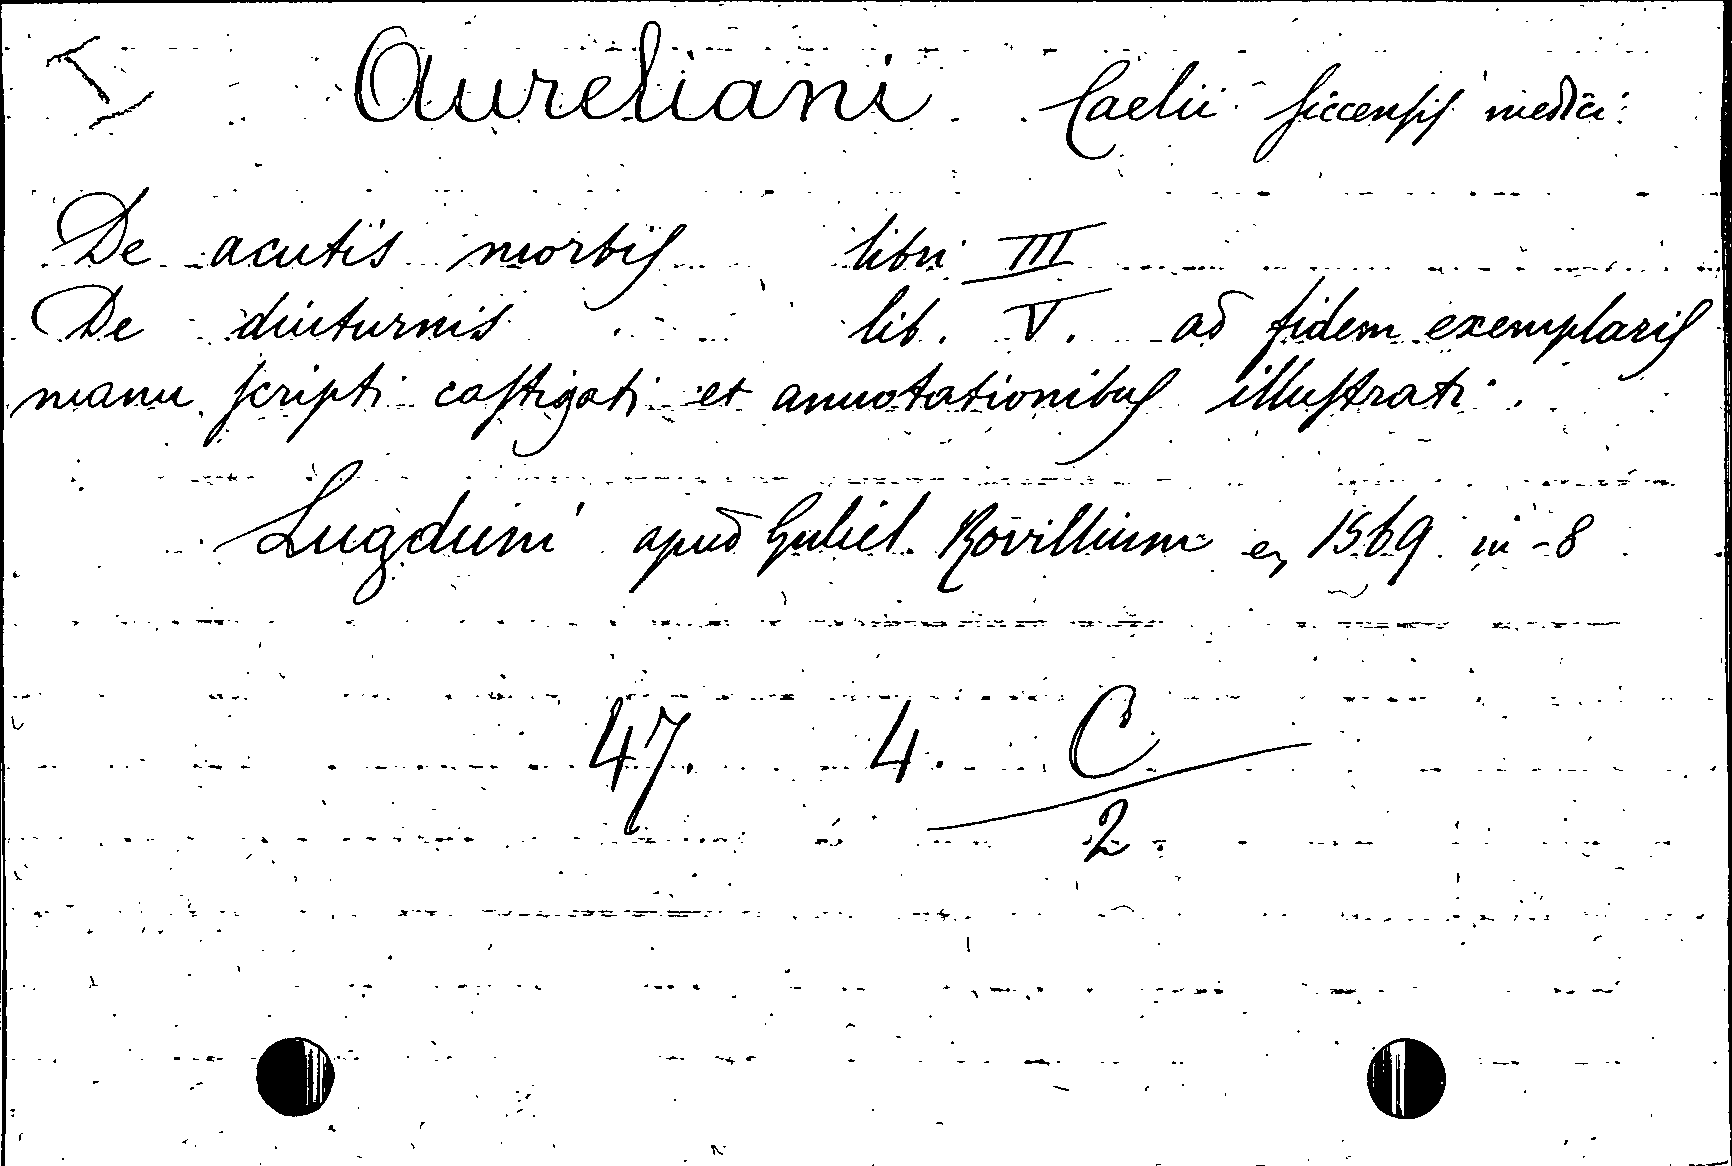 I Aureliani Caelii Siccensis medici
De acutis morbis libri III
De diuturnis lib. V. ad fidem exemplaris
manu scripti castigati et annotationibus illustrati.
Lugduni apud Guliel. Rovillium en 1569 in-8
47. 4. C
2